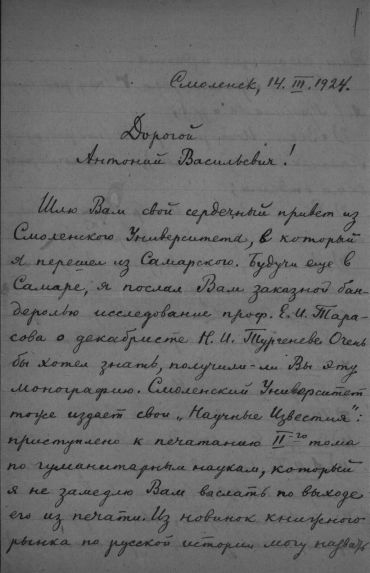 Смоленск, 14.III.1924.
Дорогой
Антоний Васильевич!
Шлю Вам свой сердечный привет из
Смоленского Университета, в который
я перешел из Самарского. Будучи еще в
Самаре, я послал Вам заказной бан-
деролью исследование проф. Е.И. Тара-
сова о декабристе Н.И. Тургеневе. Очень
бы хотел знать, получили-ли Вы эту
монографию. Смоленский Университет
тоже издает свои „Научные Известия":
приступлено к печатанию II-го тома
по гуманитарным наукам, который
я не замедлю Вам выслать по выходе
его из печати. Из новинок книжного
рынка по русской истории могу назвать